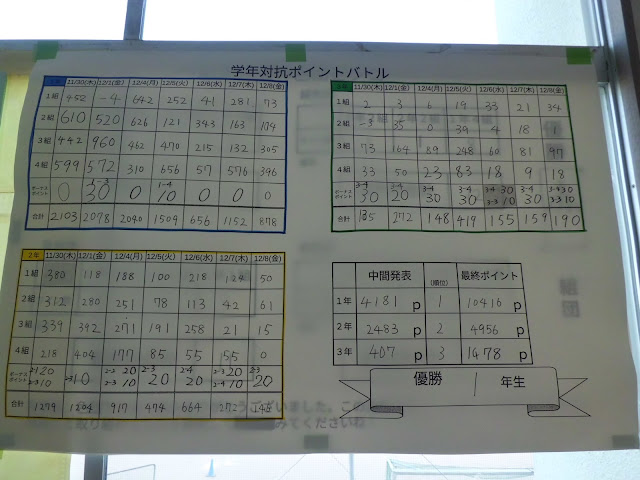 学年対抗ポイントバトル
1年 11/30(木) 12/1(金) 12/4(月) 12/5(火) 12/6(水) 12/7(木) 12/8(金)
1組 452 -4 642 252 41 281 73
2組 610 520 626 121 343 163 104
3組 442 960 462 470 215 132 305
4組 599 572 310 656 57 576 396
ボーナスポイント 0 1-3 30 0 1-4 10 0 0 0
合計 2103 2078 2040 1509 656 1152 878
3年 11/30(木) 12/1(金) 12/4(月) 12/5(火) 12/6(水) 12/7(木) 12/8(金)
1組 2 3 6 19 33 21 34
2組 -3 35 0 39 4 18 1
3組 73 164 89 248 60 81 97
4組 33 50 23 83 18 9 18
ボーナスポイント 3-4 30 3-4 20 3-4 30 3-4 30 3-4 30 3-3 10 3-4 30 3-4 30 3-3 10
合計 135 272 148 419 155 159 190
2年 11/30(木) 12/1(金) 12/4(月) 12/5(火) 12/6(水) 12/7(木) 12/8(金)
1組 380 118 188 100 218 124 50
2組 312 280 251 78 113 42 61
3組 339 392 271 191 258 21 15
4組 218 404 177 85 55 55 0
ボーナスポイント 2-1 20 2-3 10 2-1 10 2-3 20 2-3 10 2-3 20 2-4 20 2-3 20 2-4 10 2-3 20
合計 1279 1204 917 474 664 272
中間発表 (順位) 最終ポイント
1年 4181 p 1 10416 p
2年 2483 p 2 4956 p
3年 407 p 3 1478 p
優勝 1 年生